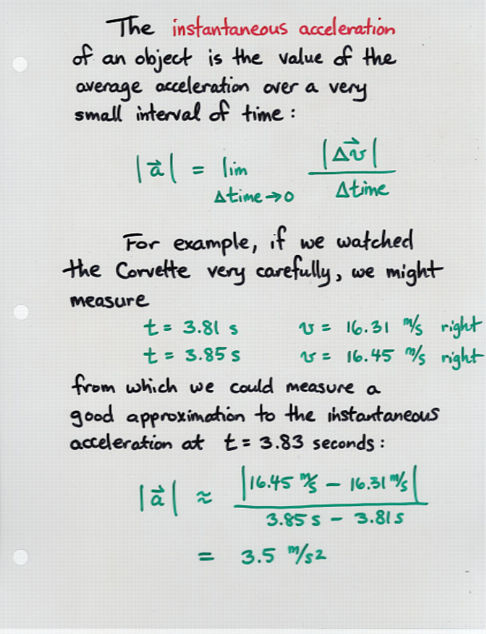 The instantaneous acceleration
of an object is the value of the
average acceleration over a very
small interval of time :
|a⃗| = lim Δtime→0 |Δv⃗| / Δtime
For example, if we watched
the Corvette very carefully, we might
measure
t = 3.81 s v = 16.31 m/s right
t = 3.85 s v = 16.45 m/s right
from which we could measure a
good approximation to the instantaneous
acceleration at t = 3.83 seconds :
|a⃗| ≈ |16.45 m/s - 16.31 m/s| / 3.85 s - 3.81 s
= 3.5 m/s2